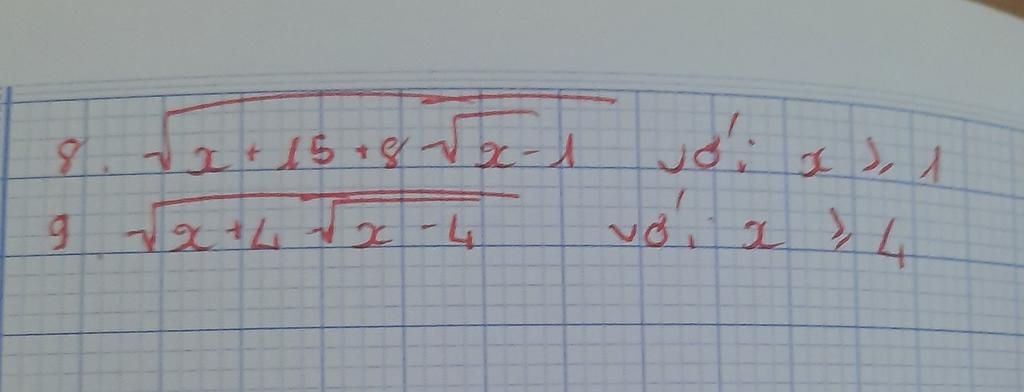 8. √(x + 15 + 8 √(x - 1)) với x ≥ 1
9 √(x + 4 √(x - 4)) với x ≥ 4